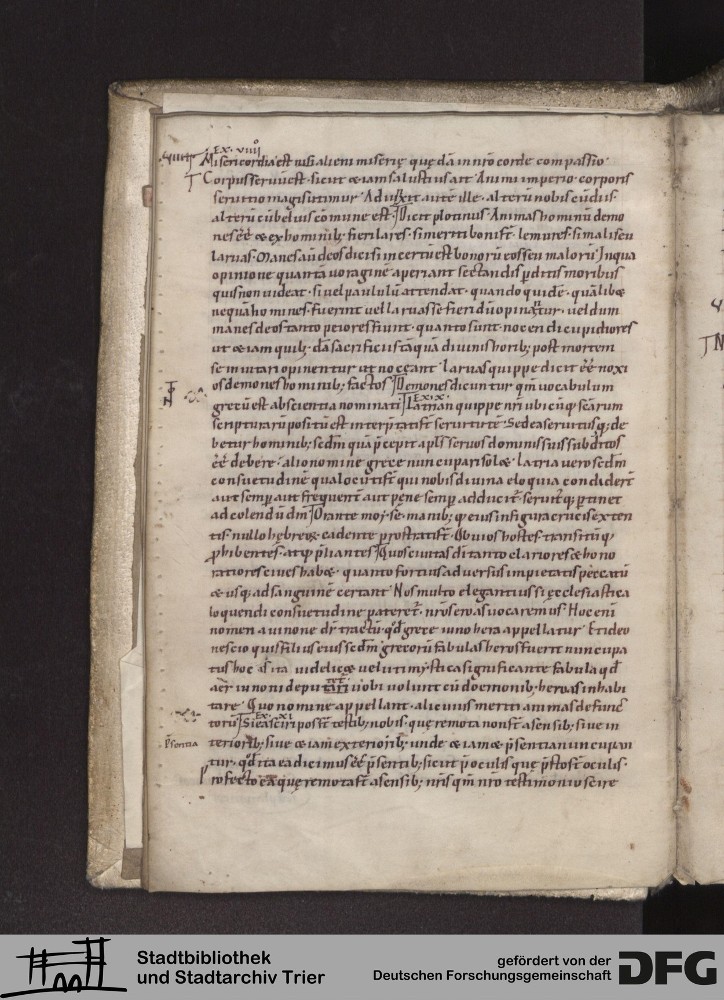 Ex. viiii
Misericordia est nisi alienę miserię quędā in nr̄o corde compassio·
Corpus seruū est· sicut & iam salustius ait· Animi imperio· corporis
seruitio magis utimur· Adiūxit autē ille· alterū nobis cū dīis·
alterū cū beluis cōmune est· Dicit plotinus· Animas hominū demo
nes eē· & ex hominib; fieri lares· si meriti boni st̄· lemures· si mali seu
laruas· Manes aū deos dici si incertū est bonorū eos seu malorū· In qua
opinione quantā uoraginē aperiant sectandis pditis moribus
quis non uideat· si uel paululū attendat· quando quidē· quālib&
nequā homines fuerint uel laruas se fieri dū opinantur· uel dum
manes deos tanto peiores fiunt· quanto sunt nocendi cupidiores
ut & iam quib;dā sacrificiis tāquā diuinis honorib; post mortem
se inuitari opinentur ut noceant· laruas quippe dicit eē noxi
os demones hominib; factos· Demones dicuntur qm̄ uocabulum
grecū est ab scientia nominati· Ex· ix· Latrian quippe nr̄i ubicūq; scārum
scripturarū positū est interp̄tati st̄ seruitutē· Sed ea seruitus q; de
betur hominib; sc̄dm quā p̄cepit apl̄s seruos dominis suis subditos
eē debere· alio nomine grece nuncupari sol&· latria uero sc̄dm
consuetudinē qua locuti st̄ qui nobis diuina eloquia condider̄t
aut semp aut frequent̄ aut pene semp ad
ad colendū dm̄· Orante moyse manib; q; eius in figura crucis exten
tis· nullo hebreo cadente prostrati st̄·
phibentes· atq; p̄liantes· Quos ciuitas di tanto clariores & hono
ratiores ciues hab&· quanto fortius aduersus impietatis peccatū
& usq; ad sanguinē certant· Nos multo elegantius si ęcclesiastica
loquendi consuetudine pateret̄· nr̄os eroas uocaremus· Hoc eni
nomen a iunone dr̄ tractū· qd̄ grece iuno hera appellatur· Et ideo
nescio quis filius eius sc̄dm grecorū fabulas heros fuerit nuncupa
tus hoc uidelic& ueluti mystica significante fabula qd̄
aer iunoni deputetur ubi uolunt cū doemonib; heroas inhabi
tare· Quo nomine appellant· alicuius meriti animas defunc
torū· Ex· xi· Si ea sciri poss̄t testib; nobis· quę remota non st̄ a sensib; siue in
teriorib; siue & iam exteriorib; unde & iam & p̄sentia nuncupan
tur· qd̄ ita ea dicimus eē p̄sentib; sicut p̄ oculis quę p̄sto st̄ oculis·
Profecto ea quę remota st̄ a sensib; nr̄is qm̄ nr̄o testimonio scire
p̄sentia
Stadtbibliothek
und Stadtarchiv Trier
gefördert von der
Deutschen Forschungsgemeinschaft
DFG